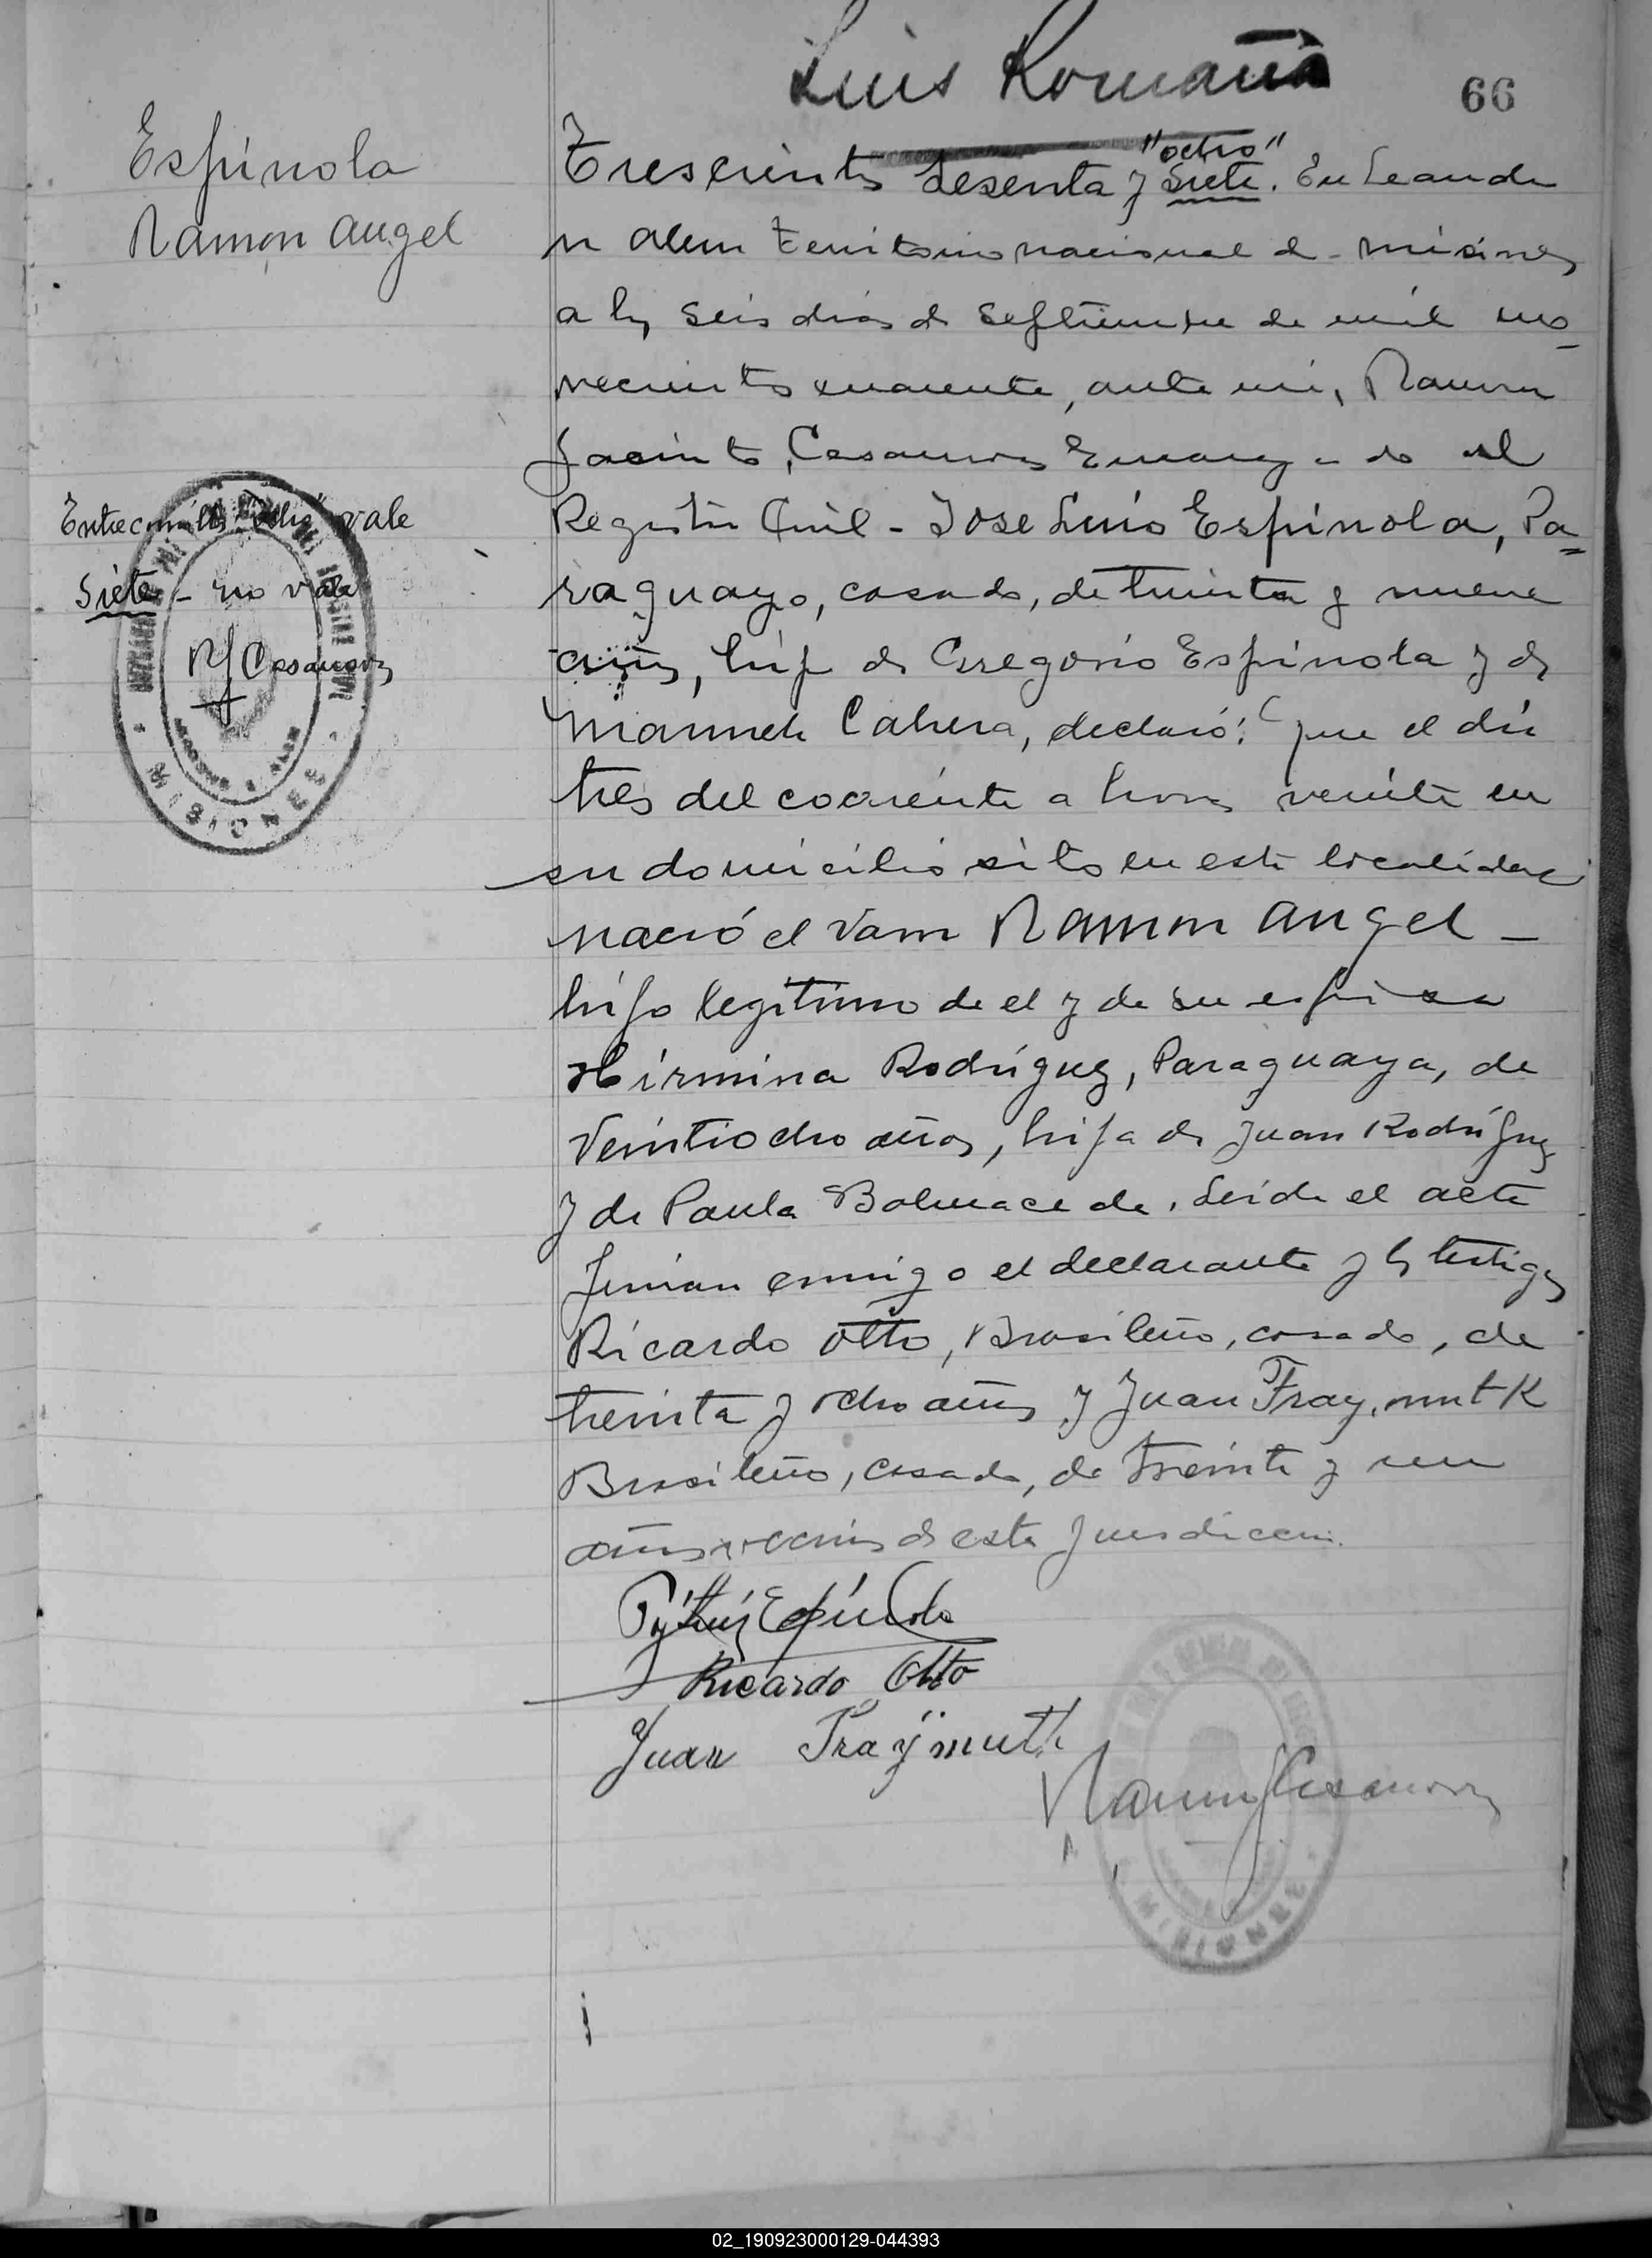 Luis Romaña
66
Espínola
Ramon Angel
Trescientos Sesenta y Siete. "ocho" En Leandro
N Alem Territorio nacional de Misiones
a los seis dias de Septiembre de mil no-
vecientos cuarenta, ante mi, Ramon
Jacinto Casanova Encargado del
Registro Civil - Jose Luis Espínola, Pa=
raguayo, casado, de treinta y nueve
años, hijo de Gregorio Espínola y de
Manuela Cabrera, declaró: Que el día
tres del corriente a horas veinte en
su domicilio sito en esta localidad
nació el varon Ramon Angel -
hijo legítimo de el y de su esposa
Hirmina Rodríguez, Paraguaya, de
Veintiocho años, hija de Juan Rodríguez
y de Paula Bolmaceda. Leida el acta
firman conmigo el declarante y los testigos
Ricardo Otto, Brasileño, casado, de
treinta y ocho años y Juan Fraymutk
Brasileño, casado, de treinta y un
años vecinos de esta Jurisdiccion.
Entrecomillas "ocho" vale
Siete - no vale
RJ Casanova
MISIONES
Luis Espínola
Ricardo Otto
Juan Fraymuth
Ramon J Casanova
MISIONES
02_190923000129-044393